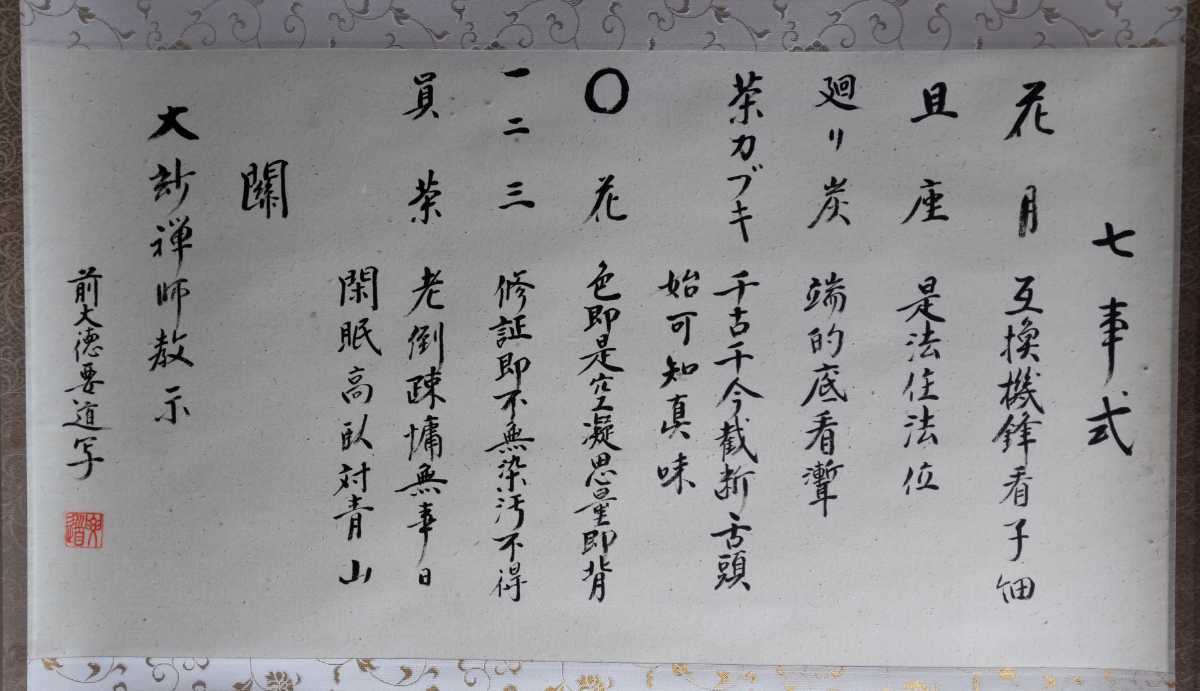 七事式
花月 互換機鋒看子細
且座 是法住法位
廻り炭 端的底看聻
茶カブキ 千古千今截断舌頭
始可知真味
〇花 色即是空凝思量即背
一二三 修証即不無染汚不得
員茶 老倒疎慵無事日
閑眠高臥対青山
關
大玅禅師教示
前大徳要道写
要道